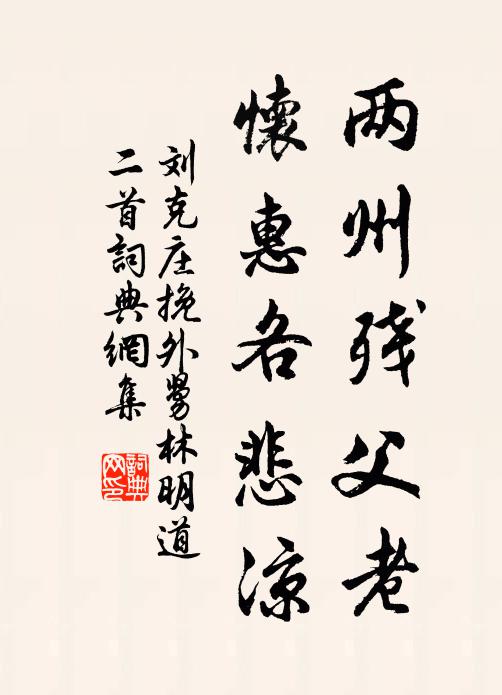 两州残父老
懷惠各悲凉
刘克庄挽外舅林明道
二首詞典網集
詞典
网印